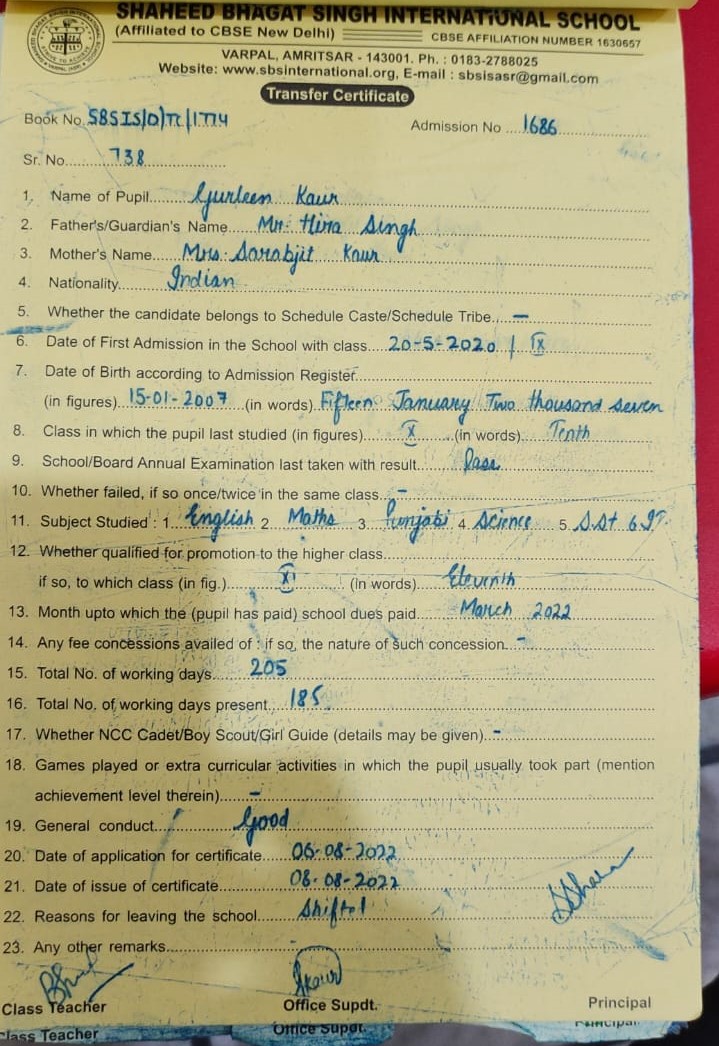 SHAHEED BHAGAT SINGH INTERNATIONAL SCHOOL
(Affiliated to CBSE New Delhi) CBSE AFFILIATION NUMBER 1630657
VARPAL, AMRITSAR - 143001. Ph. : 0183-2788025
Website: www.sbsinternational.org, E-mail : sbsisasr@gmail.com
Transfer Certificate
Book No. SBSIS/D/TC/1774 Admission No ...1686...
Sr. No. 738
1. Name of Pupil Gurleen Kaur
2. Father's/Guardian's Name Mr. Hira Singh
3. Mother's Name Mrs. Sarabjit Kaur
4. Nationality Indian
5. Whether the candidate belongs to Schedule Caste/Schedule Tribe... –
6. Date of First Admission in the School with class 20-5-2020 | IX
7. Date of Birth according to Admission Register
(in figures) 15-01-2007 (in words) Fifteen January Two thousand seven
8. Class in which the pupil last studied (in figures) X (in words) Tenth
9. School/Board Annual Examination last taken with result Pass
10. Whether failed, if so once/twice in the same class –
11. Subject Studied : 1. English 2. Maths 3. Punjabi 4. Science 5. S.St 6 IT
12. Whether qualified for promotion to the higher class
if so, to which class (in fig.) XI (in words) Eleventh
13. Month upto which the (pupil has paid) school dues paid March 2022
14. Any fee concessions availed of : if so, the nature of such concession –
15. Total No. of working days 205
16. Total No. of working days present 185
17. Whether NCC Cadet/Boy Scout/Girl Guide (details may be given) –
18. Games played or extra curricular activities in which the pupil usually took part (mention
achievement level therein) –
19. General conduct Good
20. Date of application for certificate 06-08-2022
21. Date of issue of certificate 08-08-2022
22. Reasons for leaving the school Shifted
23. Any other remarks
Class Teacher Office Supdt. Principal
Class Teacher Office Supdt. Principal